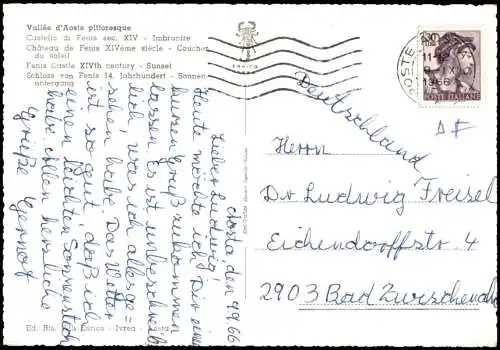 Vallée d'Aoste pittoresque
Castello di Fenis sec. XIV - Imbrunire
Château de Fenis XIVéme siècle - Coucher
du soleil
Fenis Castle XIVth century - Sunset
Schloss von Fenis 14. Jahrhundert - Sonnen
untergang
Aosta den 9.9.66
Lieber Ludwig!
Heute möchte ich Dir einen
kurzen Gruß zukommen
lassen. Es ist unbeschreib
lich, was ich alles ge=
sehen habe. Das Wetter
ist so gut, daß ich
einen leichten Sonnenstich
habe. Allen herzliche
Grüße Gernot
Ed. Ris. Enrico - Ivrea - Aosta
ENRICO
L. 30
POSTE ITALIANE
11-
1966
Deutschland
Herrn
Dr Ludwig Freisel
Eichendorffstr. 4
2903 Bad Zwischenahn